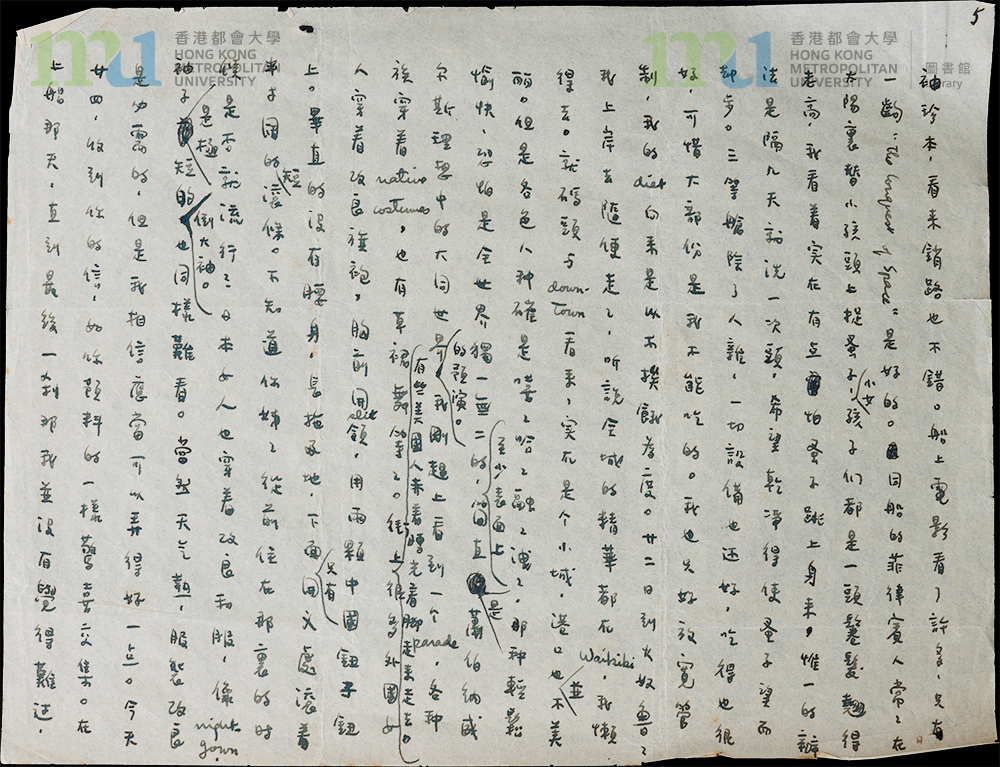 5
香港都會大學
HONG KONG
METROPOLITAN
UNIVERSITY
香港都會大學
HONG KONG
METROPOLITAN
UNIVERSITY
圖書館
Library
袖珍本，看来銷路也不錯。船上電影看了許多，只有
一齣“The Conquest of Space”是好的。同船的菲律賓人常々在
太陽裏替小孩頭上捉蚤子，小女孩子们都是一頭鬈髮翹得
老高，我看着实在有点怕蚤子跳上身来，惟一的辦
法是隔几天就洗一次頭，希望乾淨得使蚤子望而
却步。三等艙除了人雜，一切設備也还好，吃得也很
好，可惜大部份是我不能吃的。我也只好放寬管
制，我的diet向来是以不挨餓为度。廿二日到火奴魯々
我上岸去隨便走々，听説全城的精華都在Waikiki，我懶
得去。就碼頭与downtown看来，实在是个小城，港口也並不美
丽。但是各色人种確是嘻々哈々融々洩々，那种輕鬆
愉快，恐怕是全世界獨一無二的，至少表面上簡直是蕭伯納威
尔斯理想中的大同世界的預演。我剛趕上看到一个parade，各种
族穿着native costumes，也有草裙舞等々。有些美國人赤着膊光着脚走来走去。街上很多外國女
人穿着改良旗袍，胸前開slit領，用兩顆中國鈕子鈕
上。畢直的没有腰身，長拖及地，下面只有開叉處滚着
半寸闊的短滚條。不知道你姊々從前住在那裏的时
候是否就流行々日本女人也穿着改良和服，像nightgown，
袖子是極短的倒大袖。也同樣難看。當然天气熱，服裝改良
是必需的，但是我相信應當可以弄得好一点。今天
廿四，收到你的信，如你預料的一樣驚喜交集。在
上船那天，直到最後一刹那我並没有覺得難过，